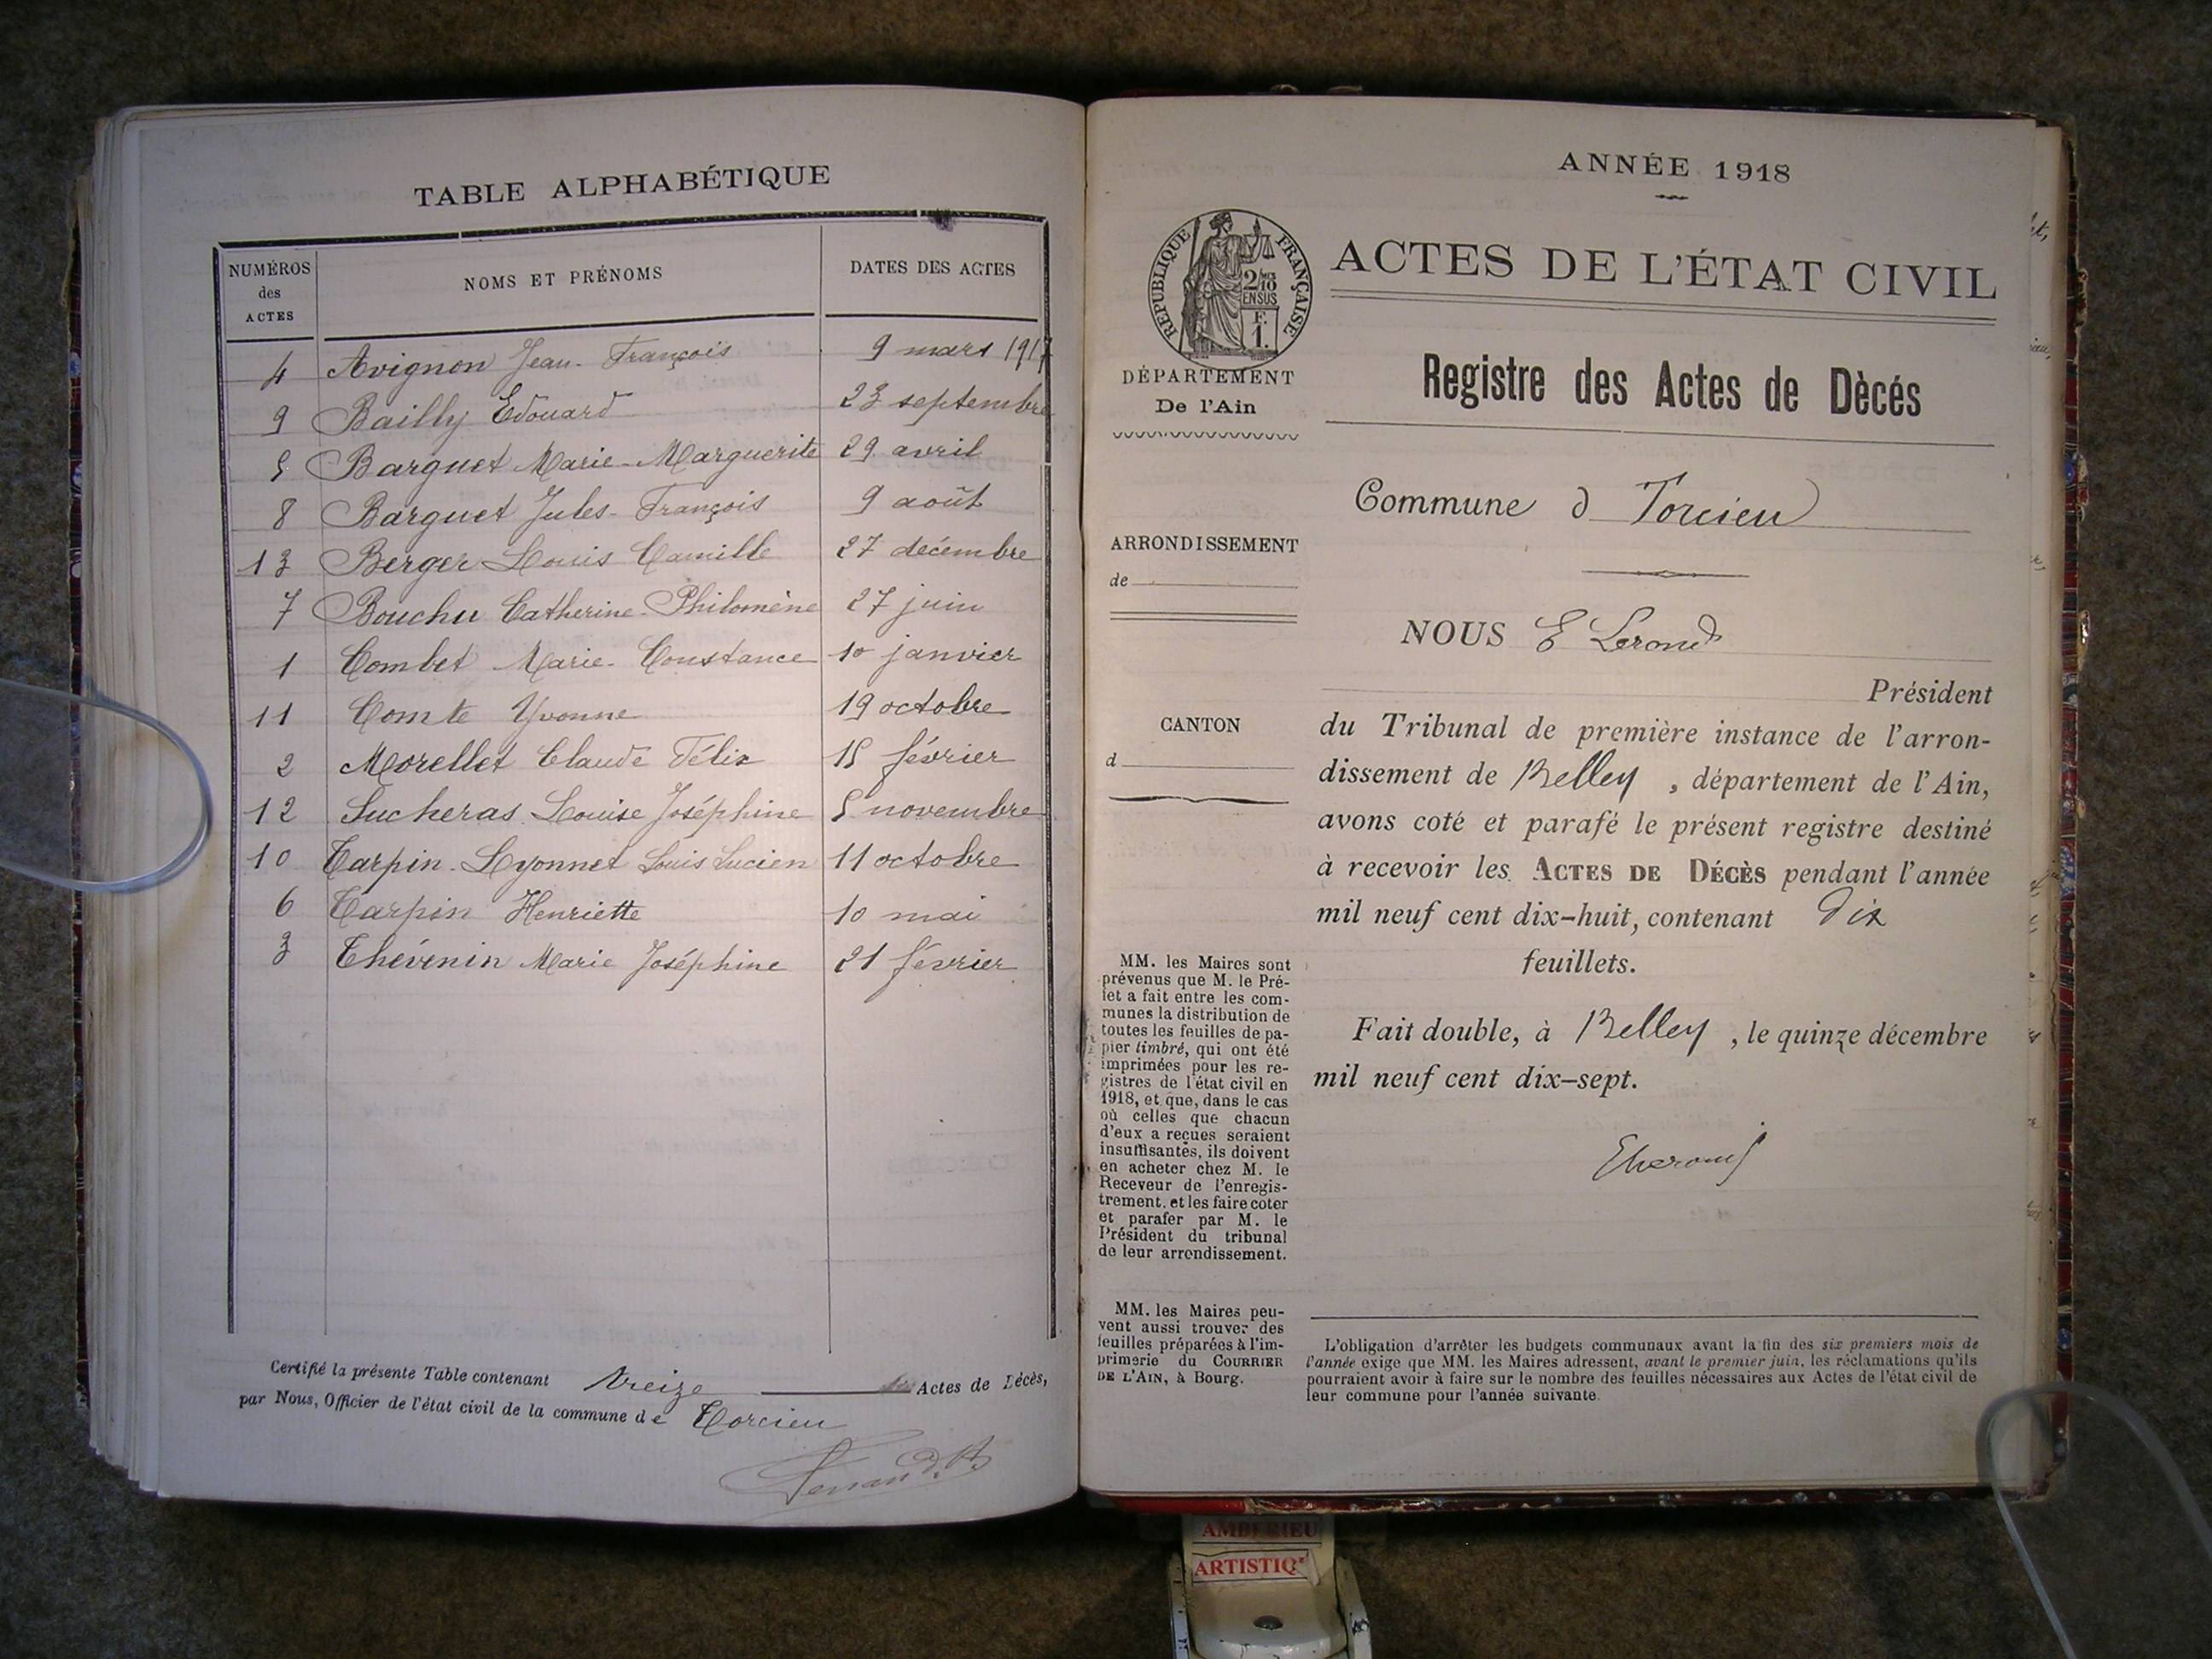 TABLE ALPHABÉTIQUE
NUMÉROS des ACTES NOMS ET PRÉNOMS DATES DES ACTES
4 Avignon Jean-François 9 mars 1917
9 Bailly Edouard 23 septembre
5 Barguet Marie-Marguerite 29 avril
8 Barguet Jules-François 9 août
13 Berger Louis Camille 27 décembre
7 Bouchu Catherine-Philomène 27 juin
1 Combet Marie-Constance 10 janvier
11 Comte Yvonne 19 octobre
2 Morellet Claude Félix 15 février
12 Sucheras Louise Joséphine 5 novembre
10 Tarpin-Lyonnet Louis Lucien 11 octobre
6 Tarpin Henriette 10 mai
3 Thévenin Marie Joséphine 21 février
Certifié la présente Table contenant treize Actes de Décès,
par Nous, Officier de l'état civil de la commune de Torcieu
ANNÉE 1918
RÉPUBLIQUE FRANÇAISE
2/10
EN SUS
F.
1.
ACTES DE L'ÉTAT CIVIL
DÉPARTEMENT
De l'Ain
Registre des Actes de Dècés
Commune d Torcieu
ARRONDISSEMENT
de
CANTON
d
NOUS E
Président
du Tribunal de première instance de l'arron-
dissement de Belley, département de l'Ain,
avons coté et parafé le présent registre destiné
à recevoir les ACTES DE DÉCÈS pendant l'année
mil neuf cent dix-huit, contenant dix
feuillets.
Fait double, à Belley, le quinze décembre
mil neuf cent dix-sept.
MM. les Maires sont
prévenus que M. le Pré-
fet a fait entre les com-
munes la distribution de
toutes les feuilles de pa-
pier timbré, qui ont été
imprimées pour les re-
gistres de l'état civil en
1918, et que, dans le cas
où celles que chacun
d'eux a reçues seraient
insuffisantes, ils doivent
en acheter chez M. le
Receveur de l'enregis-
trement, et les faire coter
et parafer par M. le
Président du tribunal
de leur arrondissement.
MM. les Maires peu-
vent aussi trouver des
feuilles préparées à l'im-
primerie du COURRIER
DE L'AIN, à Bourg.
L'obligation d'arrêter les budgets communaux avant la fin des six premiers mois de
l'année exige que MM. les Maires adressent, avant le premier juin, les réclamations qu'ils
pourraient avoir à faire sur le nombre des feuilles nécessaires aux Actes de l'état civil de
leur commune pour l'année suivante.
AMBERIEU
ARTISTIQ